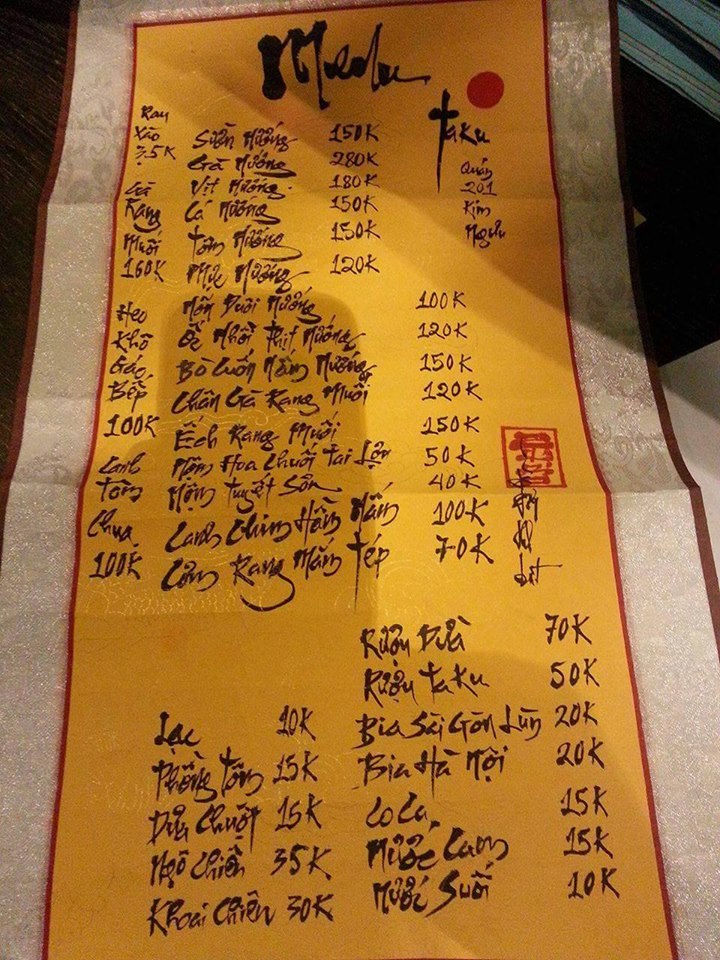 Menu
Taku
Quán
201
Kim
Ngưu
Rau
Xào
35K
Gà
Rang
Muối
160K
Heo
Khô
Gác
Bếp
100K
Canh
Tôm
Chua
100K
Sườn Nướng 150K
Gà Nướng 280K
Vịt Nướng 180K
Cá Nướng 150K
Tôm Nướng 150K
Mực Nướng 120K
Mồn Đuôi Nướng 100K
Ốc Nhồi Thịt Nướng 120K
Bò Cuốn Nấm Nướng 150K
Chân Gà Rang Muối 120K
Ếch Rang Muối 150K
Nộm Hoa Chuối Tai Lợn 50K
Nộm Tuyết Sơn 40K
Canh Chim Hầm Nấm 100K
Cơm Rang Mắm Tép 70K
Lạc 10K
Phồng Tôm 15K
Dưa Chuột 15K
Ngô Chiên 35K
Khoai Chiên 30K
Rượu Dừa 70K
Rượu Taku 50K
Bia Sài Gòn Lùn 20K
Bia Hà Nội 20K
CoCa 15K
Nước Cam 15K
Nước Suối 10K